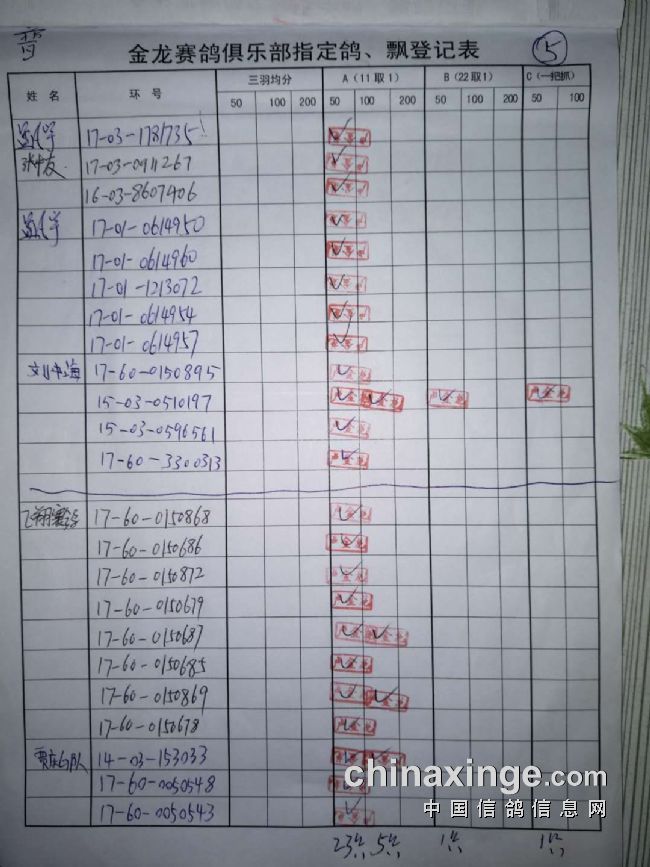 金龙赛鸽俱乐部指定鸽、飘登记表
5
姓 名 环 号 三羽均分 A（11取1） B（22取1） C（一把抓）
50 100 200 50 100 200 50 100 200 50 100
17-03-1781735
17-03-0911267
16-03-8607906
17-01-0614950
17-01-0614960
17-01-1213072
17-01-0614954
17-01-0614957
17-60-0150895
15-03-0510197
15-03-0596561
17-60-3300313
17-60-0150868
17-60-0150686
17-60-0150872
17-60-0150679
17-60-0150687
17-60-0150685
17-60-0150869
17-60-0150678
14-03-153033
17-60-0050548
17-60-0050543
23 5 1 1
chinaxinge.com
中国信鸽信息网